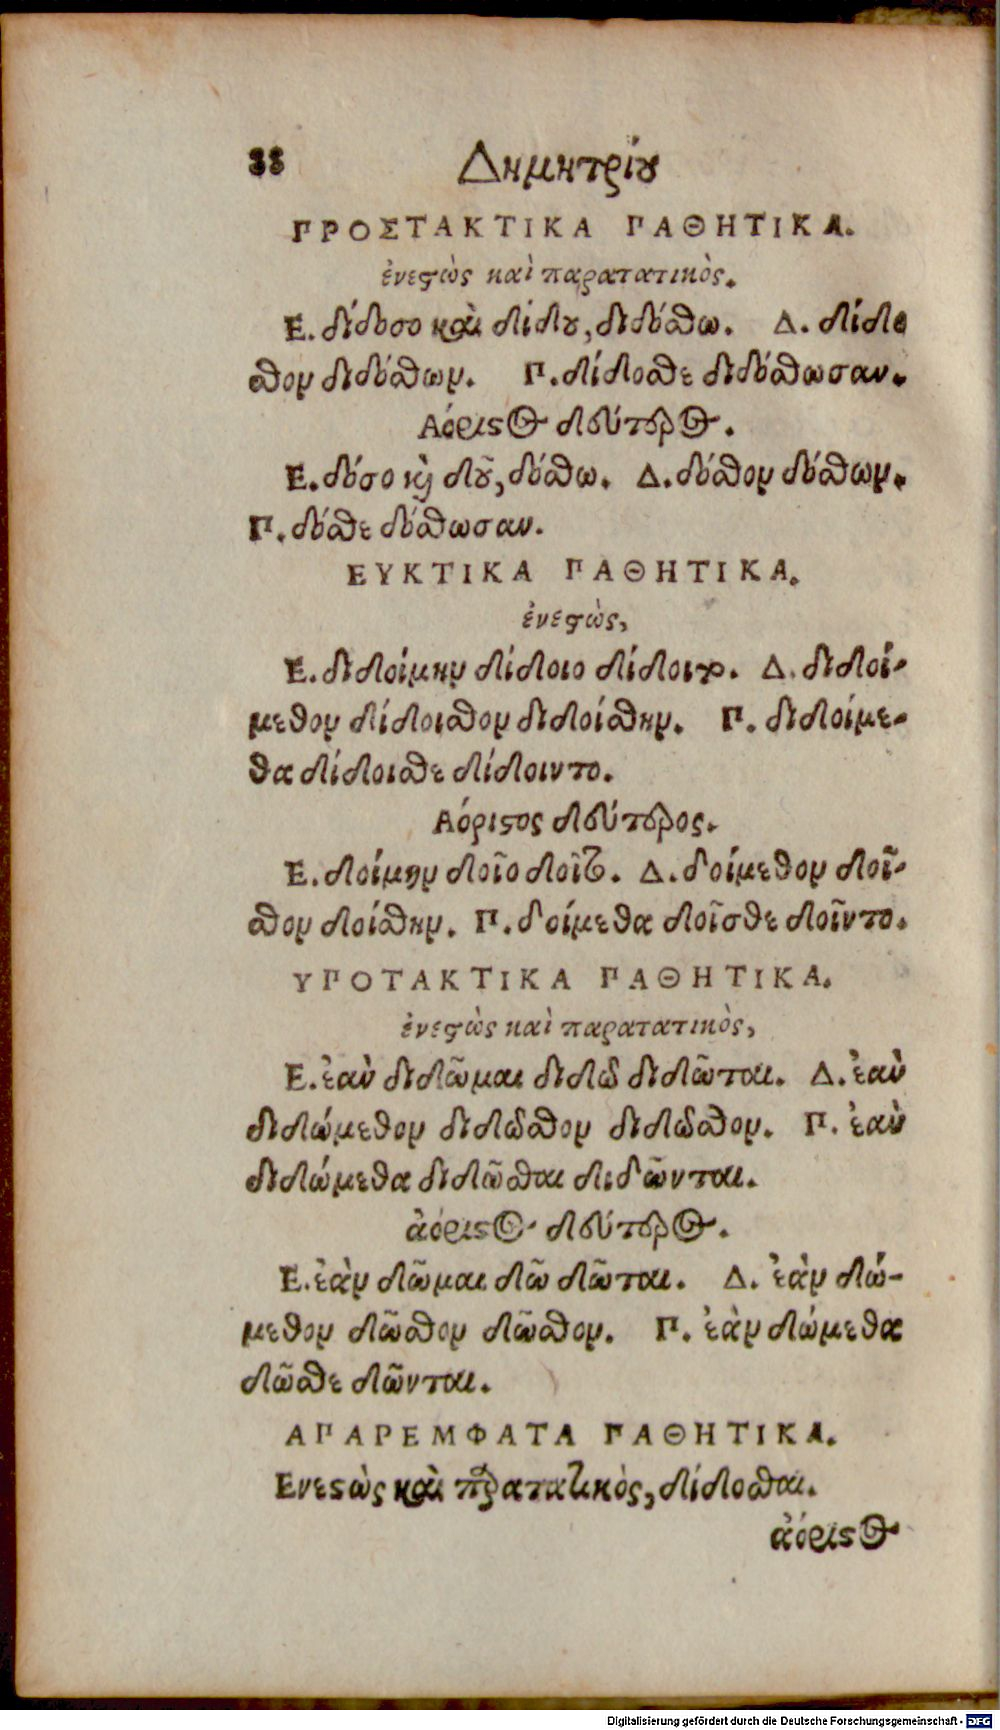 88 Δημητρίου
ΠΡΟΣΤΑΚΤΙΚΑ ΠΑΘΗΤΙΚΑ.
ἐνεστὼς καὶ παρατατικὸς.
Ε. δίδοσο καὶ δίδου, διδόσθω. Δ. δίδο
σθον διδόσθων. Π. δίδοσθε διδόσθωσαν.
Αόριστος δεύτερος.
Ε. δόσο καὶ δοῦ, δόσθω. Δ. δόσθον δόσθων.
Π. δόσθε δόσθωσαν.
ΕΥΚΤΙΚΑ ΠΑΘΗΤΙΚΑ.
ἐνεστὼς,
Ε. διδοίμην δίδοιο δίδοιτο. Δ. διδοί-
μεθον δίδοισθον διδοίσθην. Π. διδοίμε-
θα δίδοισθε δίδοιντο.
Αόριστος δεύτερος.
Ε. δοίμην δοῖο δοῖτο. Δ. δοίμεθον δοῖ-
σθον δοίσθην. Π. δοίμεθα δοῖσθε δοῖντο.
ΥΠΟΤΑΚΤΙΚΑ ΠΑΘΗΤΙΚΑ.
ἐνεστὼς καὶ παρατατικὸς,
Ε. ἐὰν διδῶμαι διδῶ διδῶται. Δ. ἐὰν
διδώμεθον διδῶσθον διδῶσθον. Π. ἐὰν
διδώμεθα διδῶσθαι διδῶνται.
ἀόριστος δεύτερος.
Ε. ἐὰν δῶμαι δῶ δῶται. Δ. ἐὰν δώ-
μεθον δῶσθον δῶσθον. Π. ἐὰν δώμεθα
δῶσθε δῶνται.
ΑΠΑΡΕΜΦΑΤΑ ΠΑΘΗΤΙΚΑ.
Ενεστὼς καὶ παρατατικὸς, δίδοσθαι.
ἀόριστος
Digitalisierung gefördert durch die Deutsche Forschungsgemeinschaft - DFG